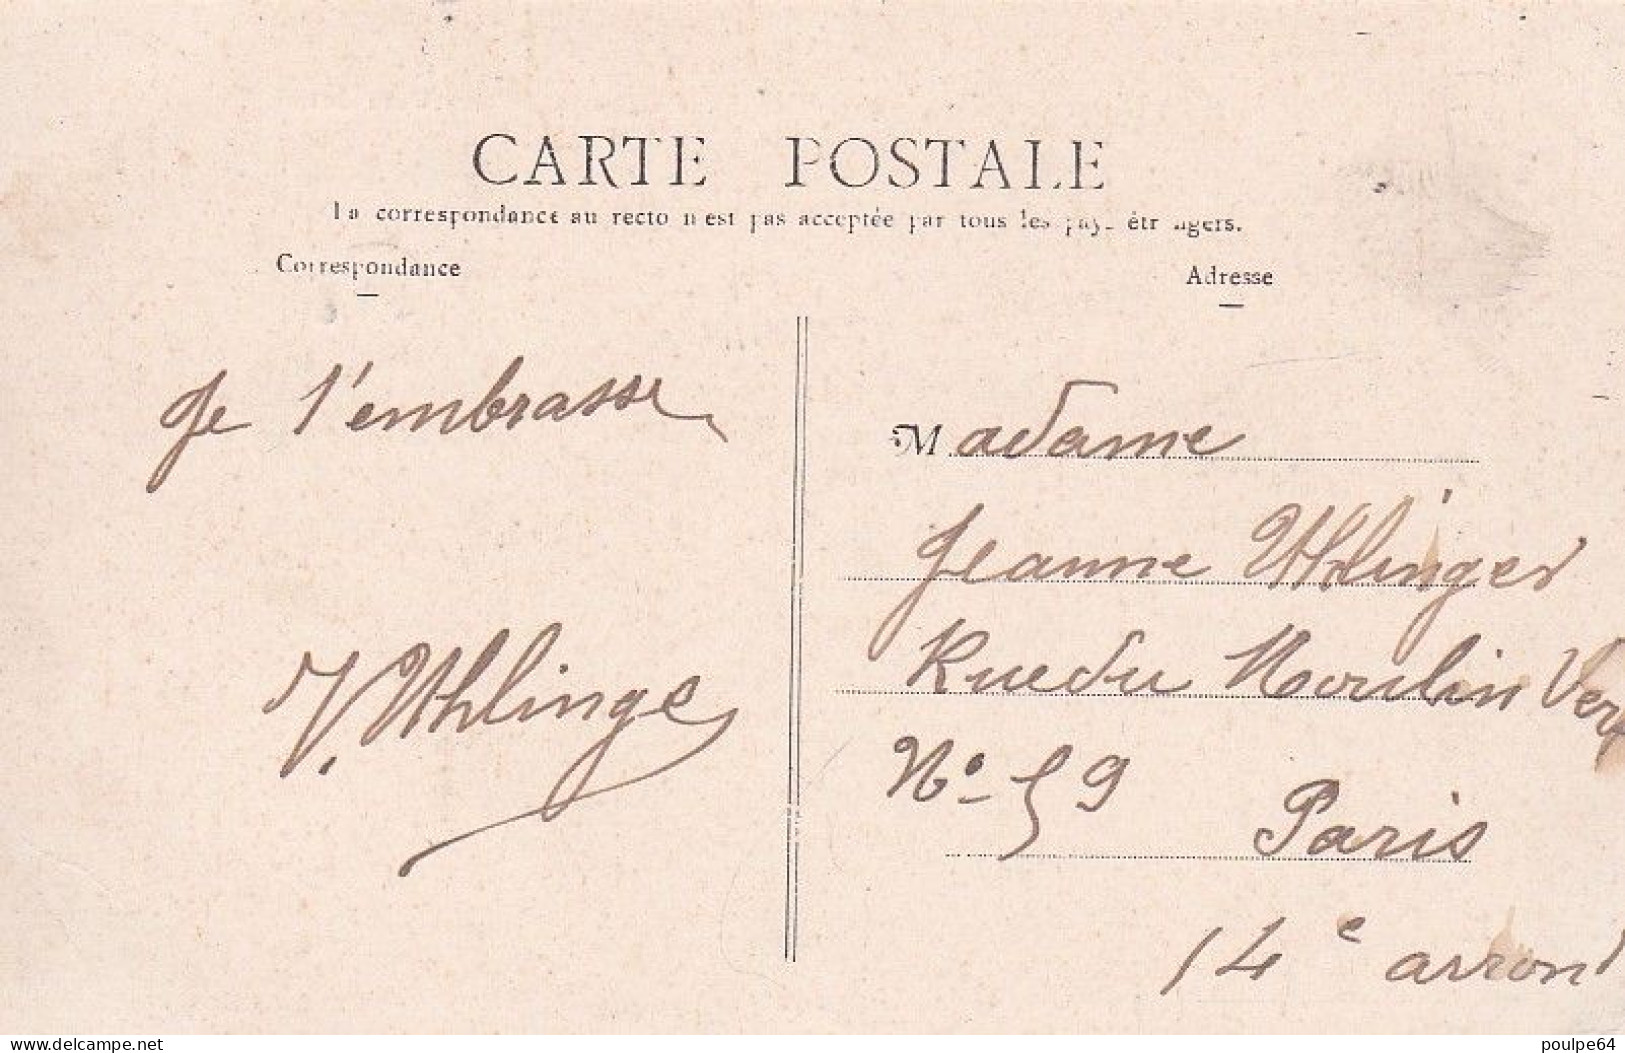 CARTE POSTALE
La correspondance au recto n'est pas acceptée par tous les pays étrangers.
Correspondance
Adresse
Je t'embrasse
V. Uhlinger
Madame
Jeanne Uhlinger
Rue du Moulin Vert
No 59
Paris
14e arrond
www.delcampe.net
poulpe64